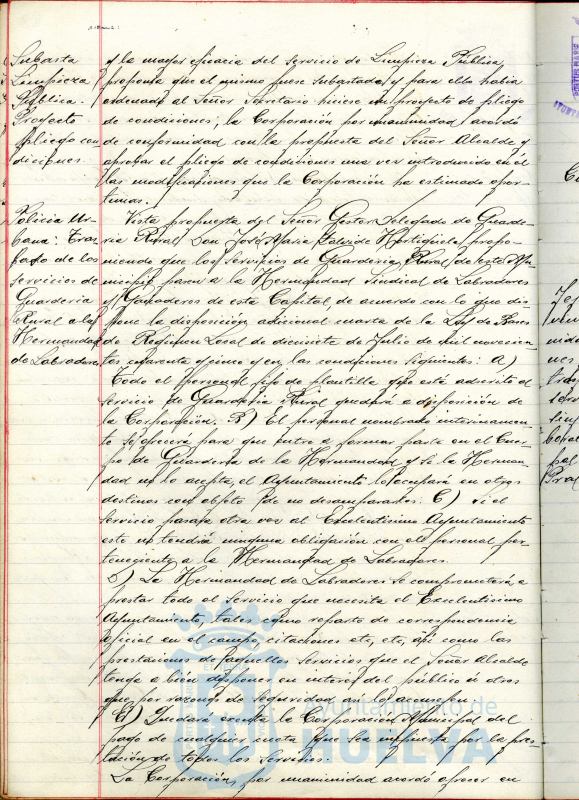 Subasta
Limpieza
Pública.
Proyecto
pliego con
diciones.
y la mayor eficacia del servicio de Limpieza Pública,
proponía que el mismo fuese subastado y para ello había
ordenado al Señor Secretario hiciese un proyecto de pliego
de condiciones, la Corporación por unanimidad acordó
de conformidad con la propuesta del Señor Alcalde y
aprobar el pliego de condiciones una vez introducido en él
las modificaciones que la Corporación ha estimado opor-
tunas.
Policía Ur-
bana. Tras
paso de los
servicios de
Guardería
Rural a la
Hermandad
de Labradores
Vista propuesta del Señor Gestor Delegado de Guarde-
ría Rural Don José María Hortigüela, propo-
niendo que los Servicios de Guardería Rural de este Mu-
nicipio pasen a la Hermandad Sindical de Labradores
y Ganaderos de esta Capital, de acuerdo con lo que dis-
pone la disposición adicional cuarta de la Ley de Bases
de Regimen Local de diecisiete de Julio de mil novecien-
tos cuarenta y cinco y en las condiciones siguientes: A)
Todo el personal fijo de plantilla que está adscrito al
servicio de Guardería Rural quedará a disposición de
la Corporación. B) El personal nombrado interinamen-
te se ofrecerá para que entre a formar parte en el Cuer-
po de Guardería de la Hermandad y si la Herman-
dad no lo acepta, el Ayuntamiento lo ocupará en otros
destinos con objeto de no desampararlos. C) Si el
servicio pasara otra vez al Excelentísimo Ayuntamiento
este no tendrá ninguna obligación con el personal per-
teneciente a la Hermandad de Labradores.
D) La Hermandad de Labradores se comprometerá a
prestar todo el servicio que necesita el Excelentísimo
Ayuntamiento, tales como reparto de correspondencia
oficial en el campo, citaciones etc, etc, así como las
prestaciones de aquellos servicios que el Señor Alcalde
tenga a bien disponer en interés del público u otros
que por razones de seguridad
E) Quedará exenta la Corporación Municipal del
pago de cualquier cuota que sea impuesta por la pres-
tación de todos los servicios.
La Corporación por unanimidad acordó ofrecer en
Ayuntamiento de
HUELVA